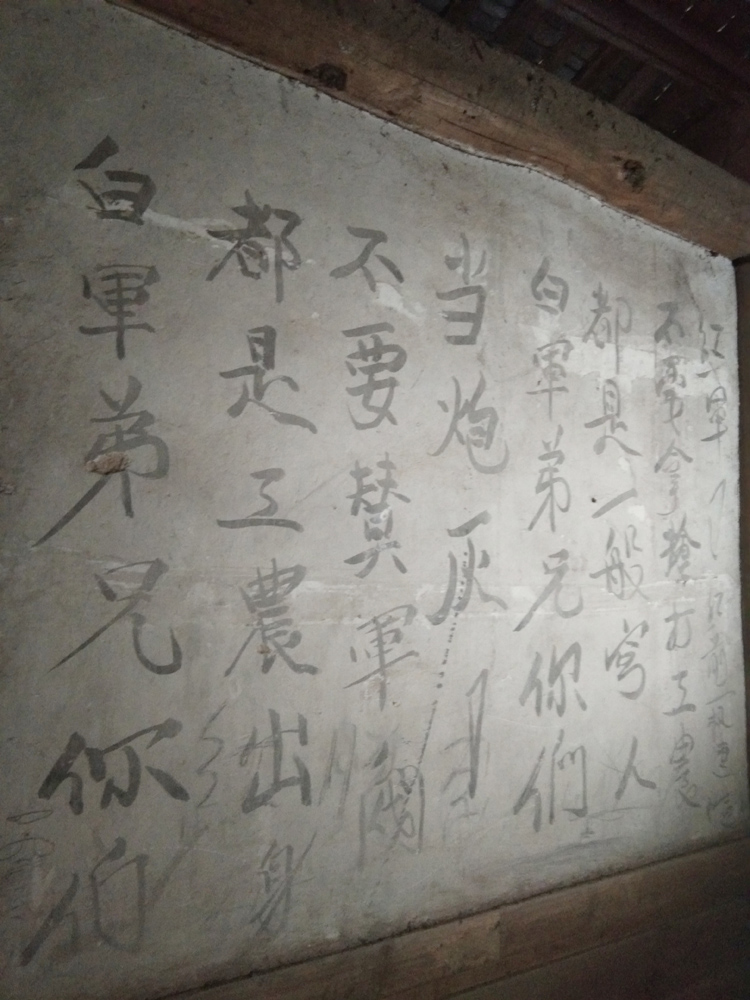 白軍弟兄你们
都是工農出身
不要替軍閥
当炮灰
白軍弟兄你們
都是一般穷人
不要拿槍打工農
红軍